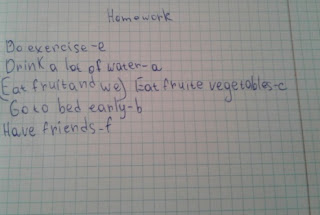 Homework
Do exercise-e
Drink a lot of water-a
(Eat fruit and we) Eat fruite vegetables-c
Go to bed early-b
Have friends-f